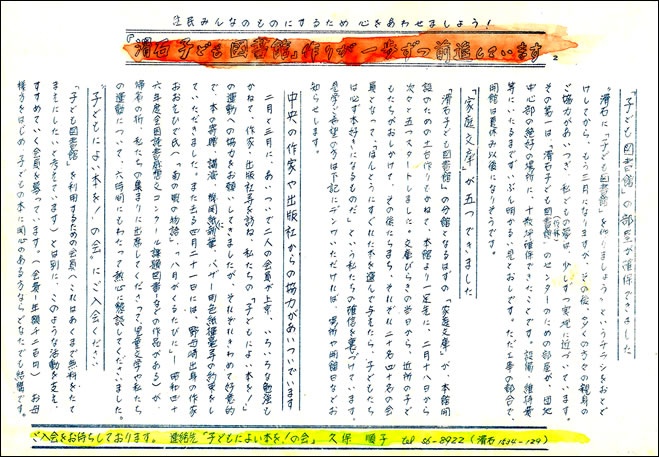 住民みんなのものにするため 心をあわせましょう！
「滑石子ども図書館」作りが一歩ずつ前進しています。
「子ども図書館」の部屋が確保できました
"滑石に「子ども図書館」を作りましょう"というチラシをおとど
けしてから、もう二月になりますが、その後、多くの方々の親身の
ご協力があいつぎ、私どもの夢は少しずつ実現に近づいています。
その第一は、「滑石子ども図書館」のセンターのための部屋が、団地
中心部の絶好の場所に、十数坪確保できたことです。設備、維持費
等にいたるまで、ずい分明かるい見とおしです。ただ工事の都合で、
開館は夏休み以後になりそうです。
「家庭文庫」が五つできました
「滑石子ども図書館」の分館となるはずの「家庭文庫」が、本館開
設のための土台作りもかねて、本館より一足先に、二月十八日から
次々と五つスタートしました。文庫びらきの当日から、近所の子ど
もたちがおしかけて、その後にらまち、それぞれ二十名、四十名の会
員となって、「ほんとうにすぐれた本を選んで与えたら、子どもたち
は必ず本好きになるものだ」という私たちの確信を裏づけています。
見学ご希望の方は下記にデンワいただければ、場所や開館日をお
知らせします。
中央の作家や出版社からの協力があいついでいます
二月と三月に、あいついで二人の会員が上京、いろいろな勉強も
かねて、作家・出版社等を訪ね、私たちの「子どもによい本を！」
の運動への協力をお願いしてきましたが、それぞれきわめて好意的
で、本の寄贈、講演、バザー用色紙揮毫等の約束をし
ていただきました。また去る四月二十一日には、長崎出身の作家
おおえひで氏（「南の風の物語」、「八月がくるたびに」――昭和四十
六年度全国読書感想文コンクール課題図書――などの作品がある）が
帰省の折、私たちの集まりに出席してくださって、児童文学や私たち
の運動について、六時間にもわたって熱心に懇談してくださいました。
「子どもによい本を！の会」にご入会ください
「子ども図書館」を利用するための会員（これはあくまで無料をたて
まえにしたいと考えています）とは別に、このような活動を支え、
すすめていく会員を募っています。（会費一年額千二百円）お母
様方をはじめ、子どもの本に関心のある方ならどなたでも結構です。
ご入会をお待ちしております。 連絡先「子どもによい本を！の会」 久保 順子 tel 56-8922（滑石1534-129）